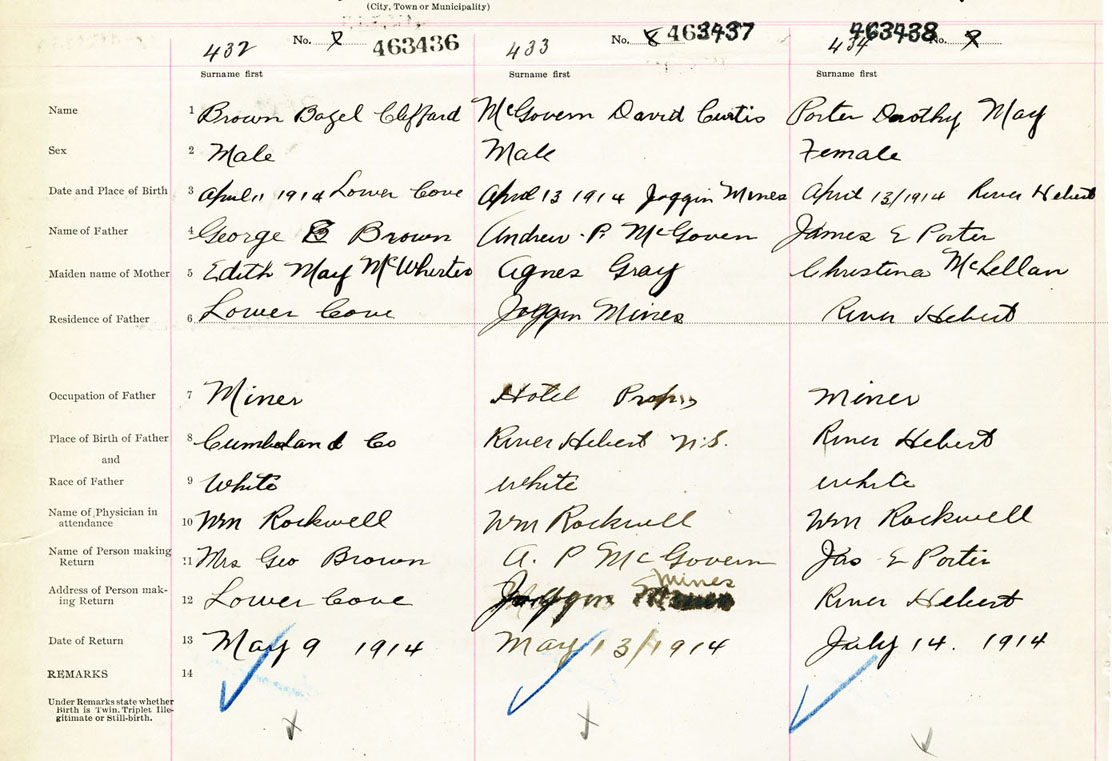 (City, Town or Municipality)
432 No. 463436 433 No. 8 463437 434 463438 No. 9
Surname first Surname first Surname first
Name 1 Brown Bazel Clifford McGovern David Curtis Porter Dorothy May
Sex 2 Male Male Female
Date and Place of Birth 3 April 11 1914 Lower Cove April 13 1914 Joggin Mines April 13/1914 River Hebert
Name of Father 4 George B Brown Andrew P. McGovern James E Porter
Maiden name of Mother 5 Edith May McWherter Agnes Gray Christena McLellan
Residence of Father 6 Lower Cove Joggin Mines River Hebert
Occupation of Father 7 Miner Hotel miner
Place of Birth of Father 8 Cumberland Co River Hebert N.S. River Hebert
and
Race of Father 9 White white white
Name of Physician in
attendance 10 Wm Rockwell Wm Rockwell Wm Rockwell
Name of Person making
Return 11 Mrs Geo Brown A. P McGovern Jas E Porter
Address of Person mak-
ing Return 12 Lower Cove Joggin Mines River Hebert
Date of Return 13 May 9 1914 May 13/1914 July 14. 1914
REMARKS 14
Under Remarks state whether
Birth is Twin, Triplet Ille-
gitimate or Still-birth.